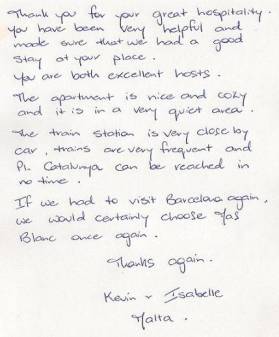 Thank you for your great hospitality.
You have been very helpful and
made sure that we had a good
stay at your place.
You are both excellent hosts.
The apartment is nice and cozy
and it is in a very quiet area.
The train station is very close by
car, trains are very frequent and
Pl. Catalunya can be reached in
no time.
If we had to visit Barcelona again,
we would certainly choose Mas
Blanc once again.
Thanks again.
Kevin & Isabelle
Malta.